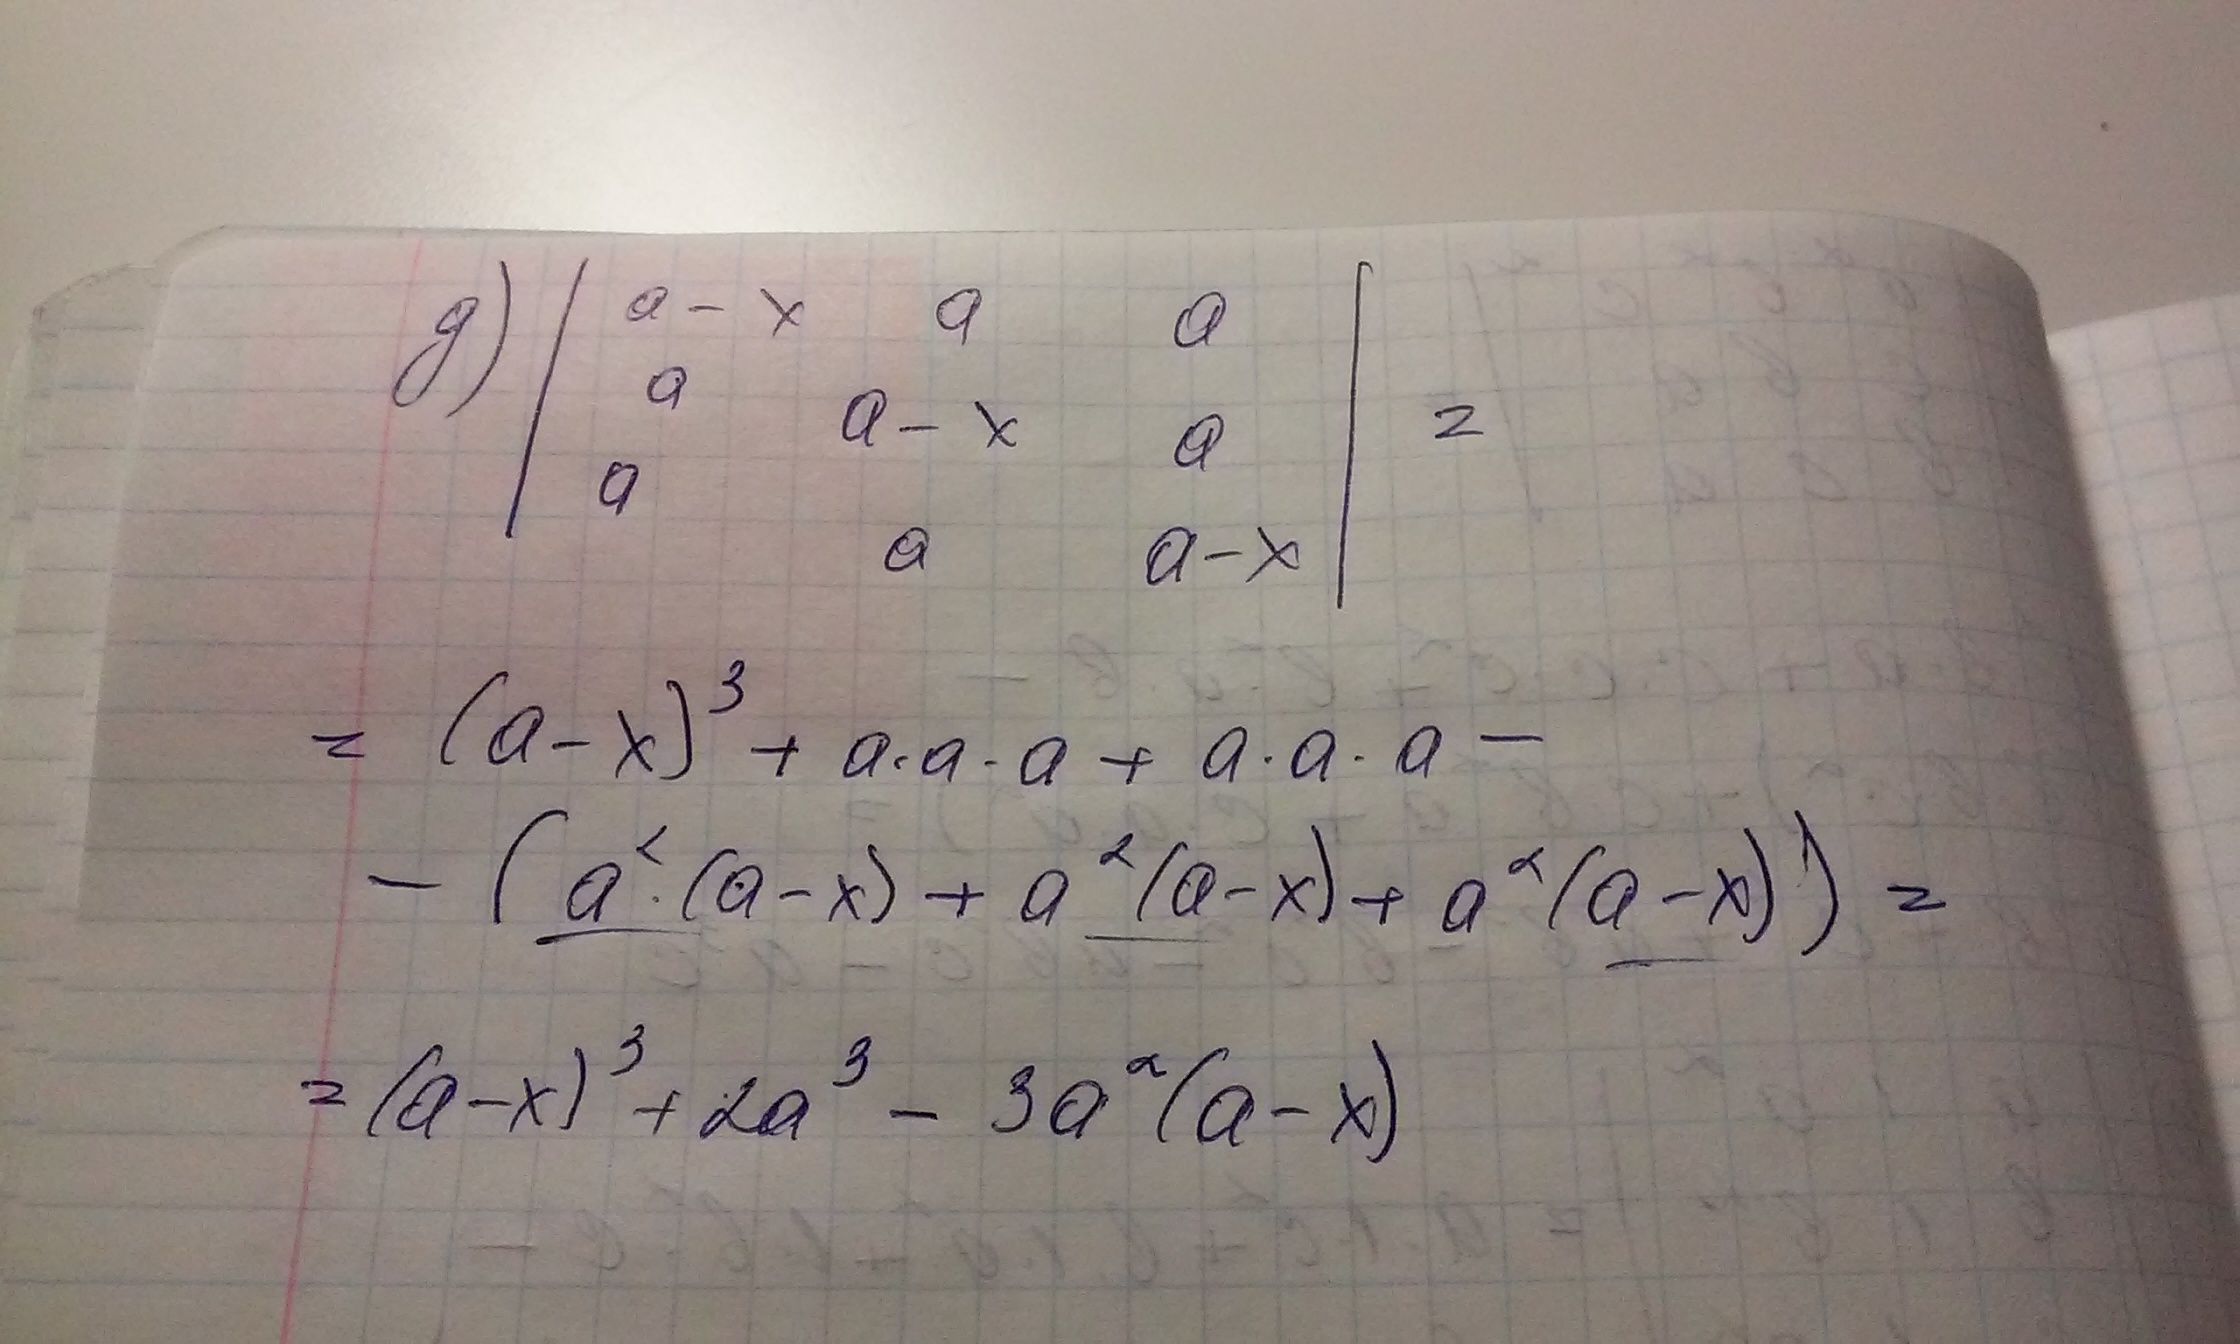 g) | a - x a a |
a a - x a =
a a a - x
= (a - x)³ + a · a · a + a · a · a -
- (a² · (a - x) + a² (a - x) + a² (a - x)) =
= (a - x)³ + 2a³ - 3a² (a - x)